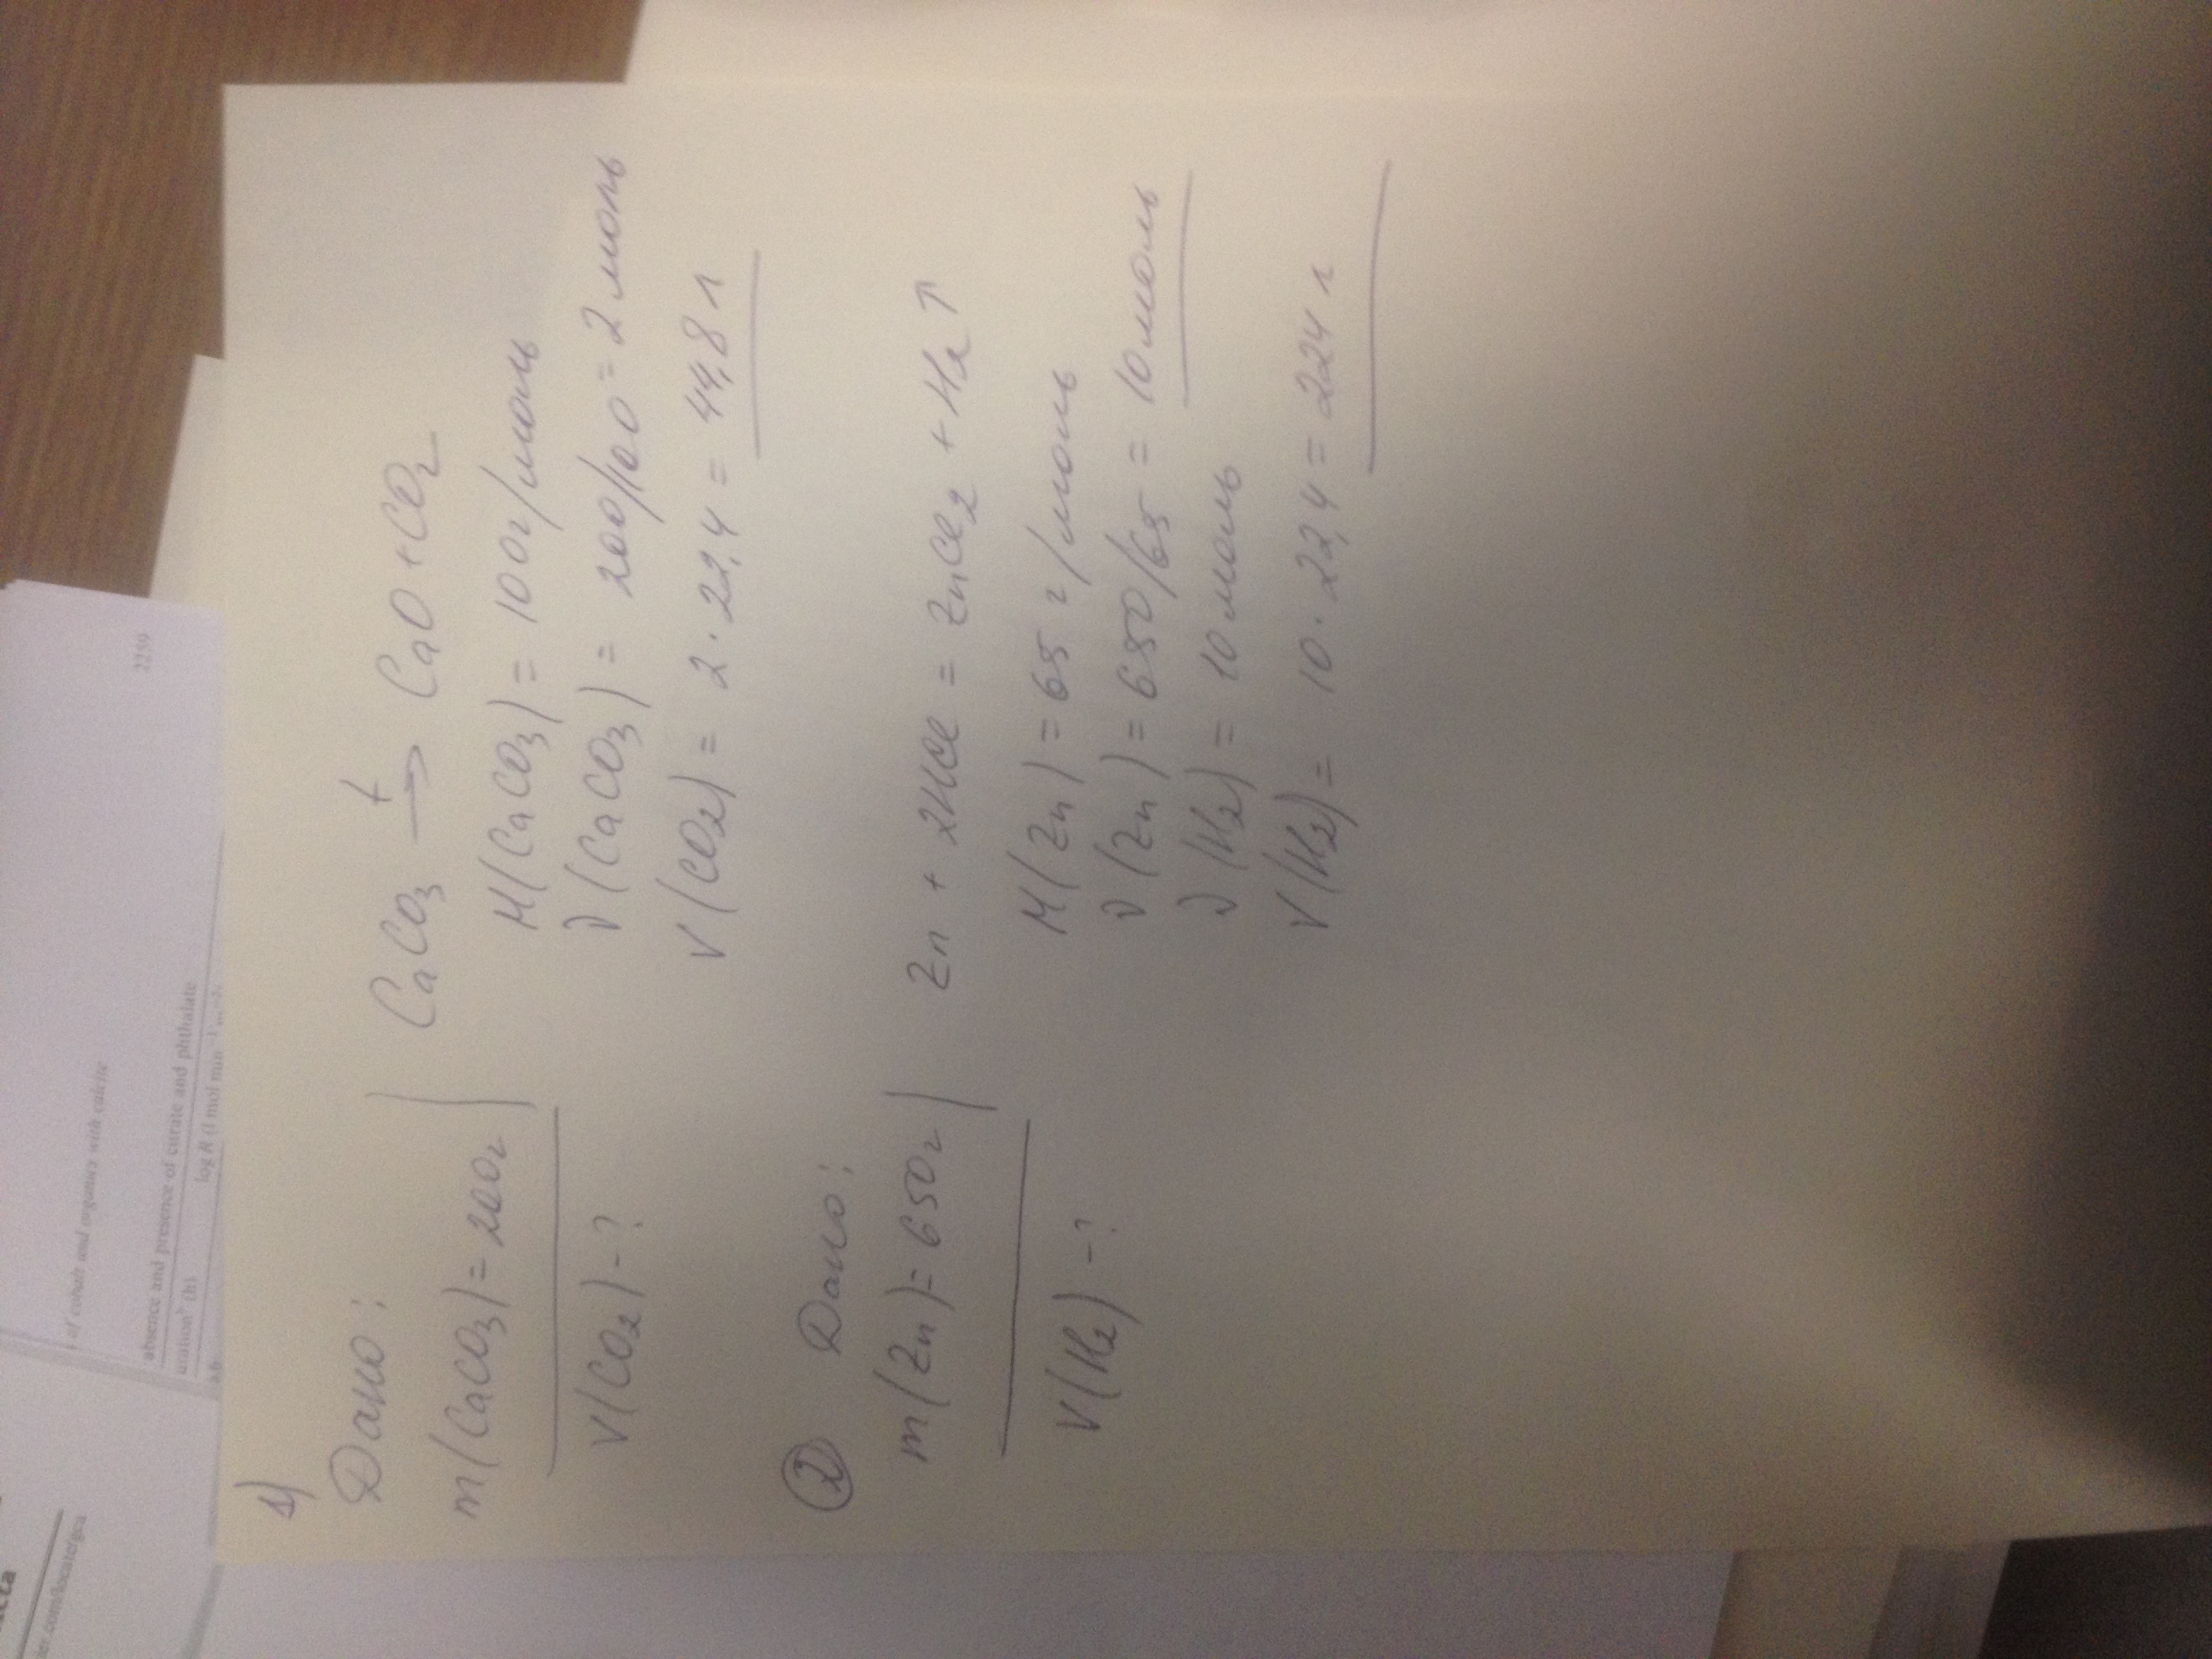 1)
Дано:
m(CaCO3)=200г
V(CO2)-?
CaCO3 t→ CaO+CO2
M(CaCO3)=100г/моль
ν(CaCO3)=200/100=2моль
V(CO2)=2·22,4=44,8л
2 Дано:
m(Zn)=650г
V(H2)-?
Zn+2HCl=ZnCl2+H2↑
M(Zn)=65г/моль
ν(Zn)=650/65=10моль
ν(H2)=10моль
V(H2)=10·22,4=224л
2259
of cobalt and organics with calcite
absence and presence of citrate and phthalate
log R (l mol min⁻¹ m⁻²)